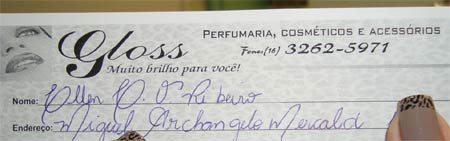 Gloss
PERFUMARIA, COSMÉTICOS E ACESSÓRIOS
Fone: (16) 3262-5971
Muito brilho para você!
Nome: Ellen D. O. Ribeiro
Endereço: Miguel Archangelo